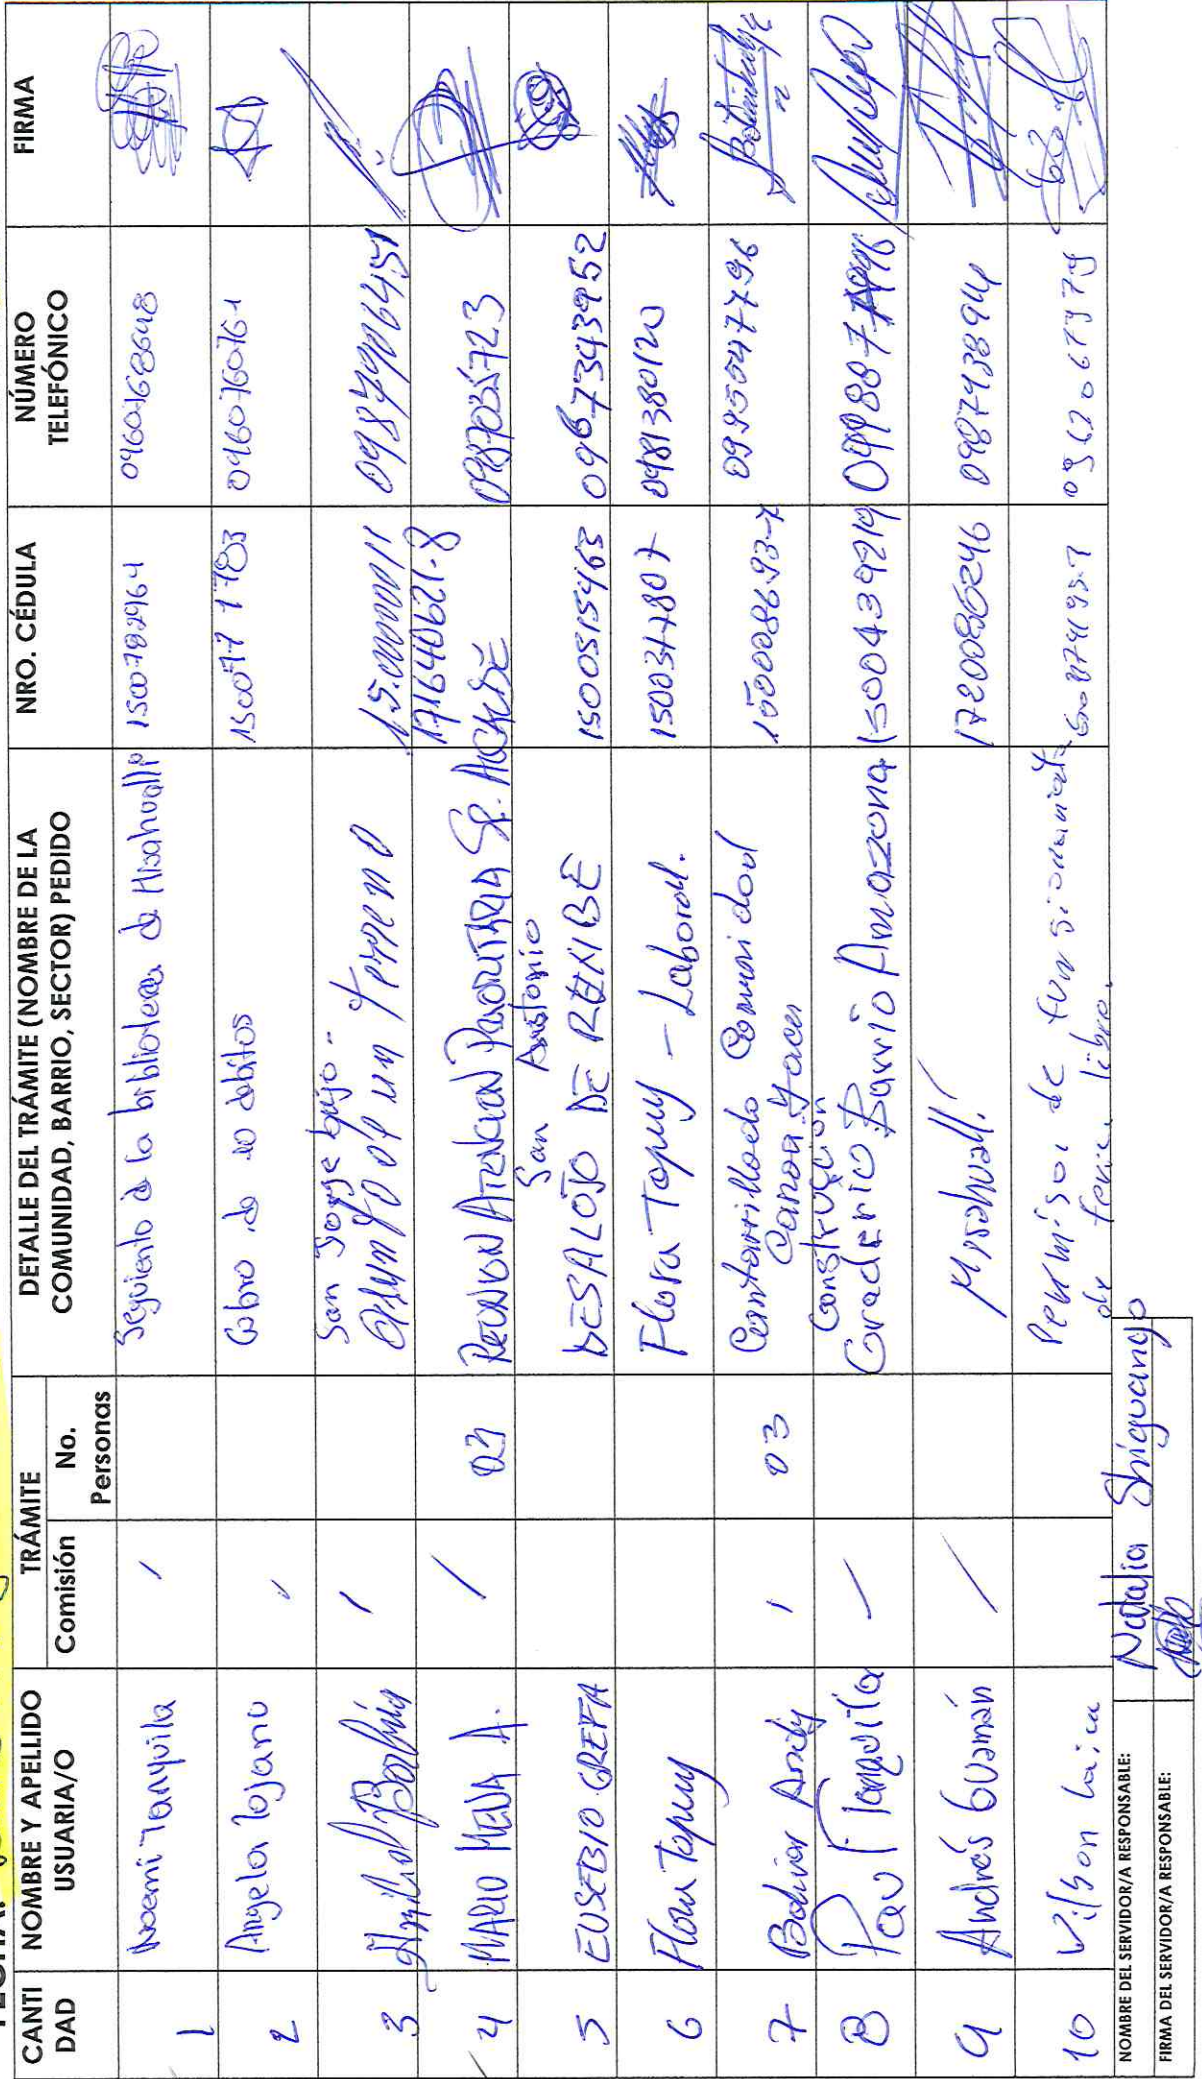 FECHA:
CANTI DAD | NOMBRE Y APELLIDO USUARIA/O | TRÁMITE | DETALLE DEL TRÁMITE (NOMBRE DE LA COMUNIDAD, BARRIO, SECTOR) PEDIDO | NRO. CÉDULA | NÚMERO TELEFÓNICO | FIRMA
Comisión | No. Personas
1 | Noemi Tanquila | / | Seguiento d la biblioteca de Misahualli | 1500782964 | 0960168648
2 | Angela Lojano | / | Cobro de debitos | 1500771783 | 0960760761
3 | / | San Jorge bajo.- un terreno
4 | MARIO MENA A. | / | 03 | REUNION ATENCION PRIORITARIA SR. ALCALDE | 171640621-8
5 | EUSEBIO GREFA | San Antonio
DESALOJO DE | 1500515463 | 0967343952
6 | Flora Tapuy | Flora Tapuy - Laboral. | 150037807 | 0981380120
7 | Bolivar Andy | / | 03 | Comunidad
Canoa Yacu | 150008693-7 | 0995047796
8 | Paul Tanquila | / | Construcción
Graderio Barrio Amazona | 1500439219
9 | Andrés Guamán | / | Misahuallí | 1720086246 | 0987438944
10 | Wilson Laica | Permisos de funsionamiento
de feria libre.
NOMBRE DEL SERVIDOR/A RESPONSABLE: | Natalia Shiguango
FIRMA DEL SERVIDOR/A RESPONSABLE: